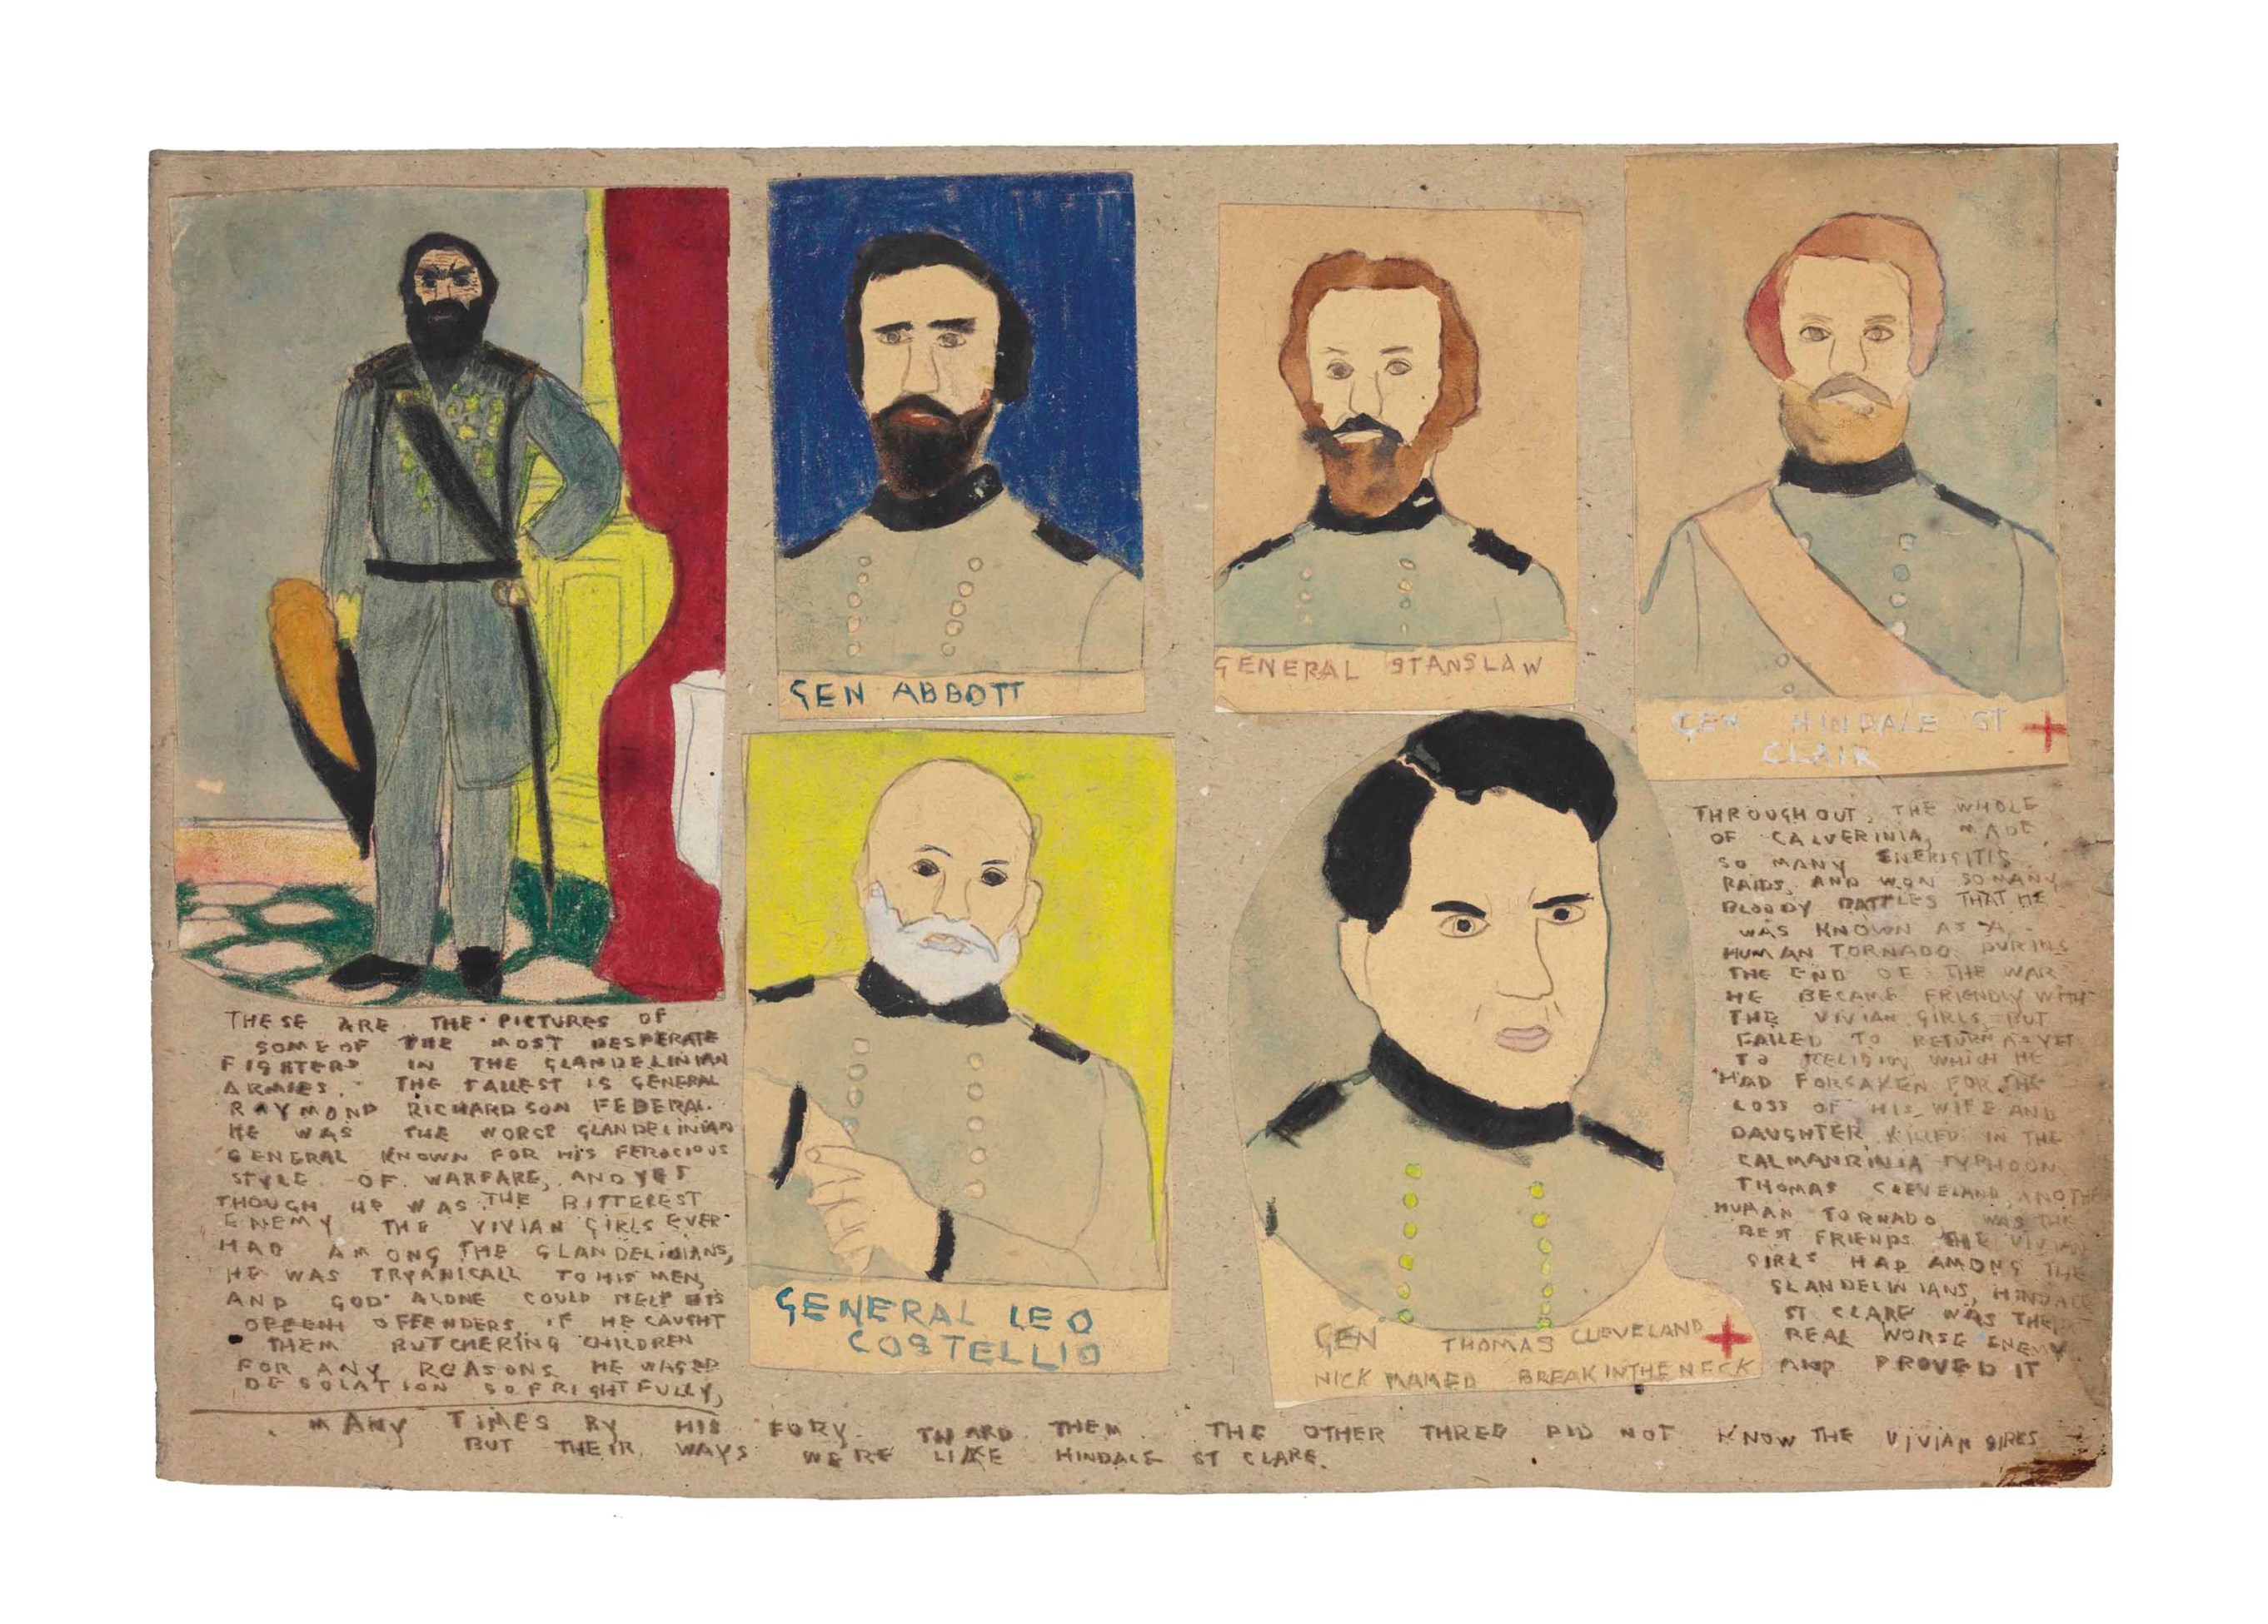 GEN ABBOTT
GENERAL STANSLAW
GEN HINDALE ST
CLAIR
GENERAL LEO
COSTELLIO
GEN THOMAS CLEVELAND
NICK MAMED BREAKINTHENECK
THESE ARE THE PICTURES OF
SOME OF THE MOST DESPERATE
FIGHTERS IN THE GLANDELINIAN
ARMIES. THE TALLEST IS GENERAL
RAYMOND RICHARDSON FEDERAL.
HE WAS THE WORSE GLANDELINIAN
GENERAL KNOWN FOR HIS FEROCIOUS
STYLE OF WARFARE, AND YET
THOUGH HE WAS THE BITTEREST
ENEMY THE VIVIAN GIRLS EVER
HAD AMONG THE GLANDELINIANS,
HE WAS TRYANICALL TO HIS MEN,
AND GOD ALONE COULD HELP HIS
OFFENDERS IF HE CAUGHT
THEM BUTCHERING CHILDREN
FOR ANY REASONS HE WAGED
DESOLATION SO FRIGHTFULLY,
THROUGHOUT THE WHOLE
OF CALVERINIA, MADE
SO MANY
RAIDS, AND WON SO MANY
BLOODY BATTLES THAT HE
WAS KNOWN AS A
HUMAN TORNADO DURING
THE END OF THE WAR
HE BECAME FRIENDLY WITH
THE VIVIAN GIRLS, BUT
FAILED TO RETURN AS YET
TO RELIGION WHICH HE
HAD FORSAKEN FOR THE
LOSS OF HIS WIFE AND
DAUGHTER KILLED IN THE
CALMANRINIA TYPHOON
THOMAS CLEVELAND, ANOTHER
HUMAN TORNADO WAS THE
BEST FRIENDS THE VIVIAN
GIRLS HAD AMONG THE
GLANDELINIANS, HINDALE
ST CLARE WAS THE
REAL WORSE ENEMY
AND PROVED IT
MANY TIMES BY HIS FURY TWARD THEM. THE OTHER THREE DID NOT KNOW THE VIVIAN GIRLS
BUT THEIR WAYS WERE LIKE HINDALE ST CLARE.